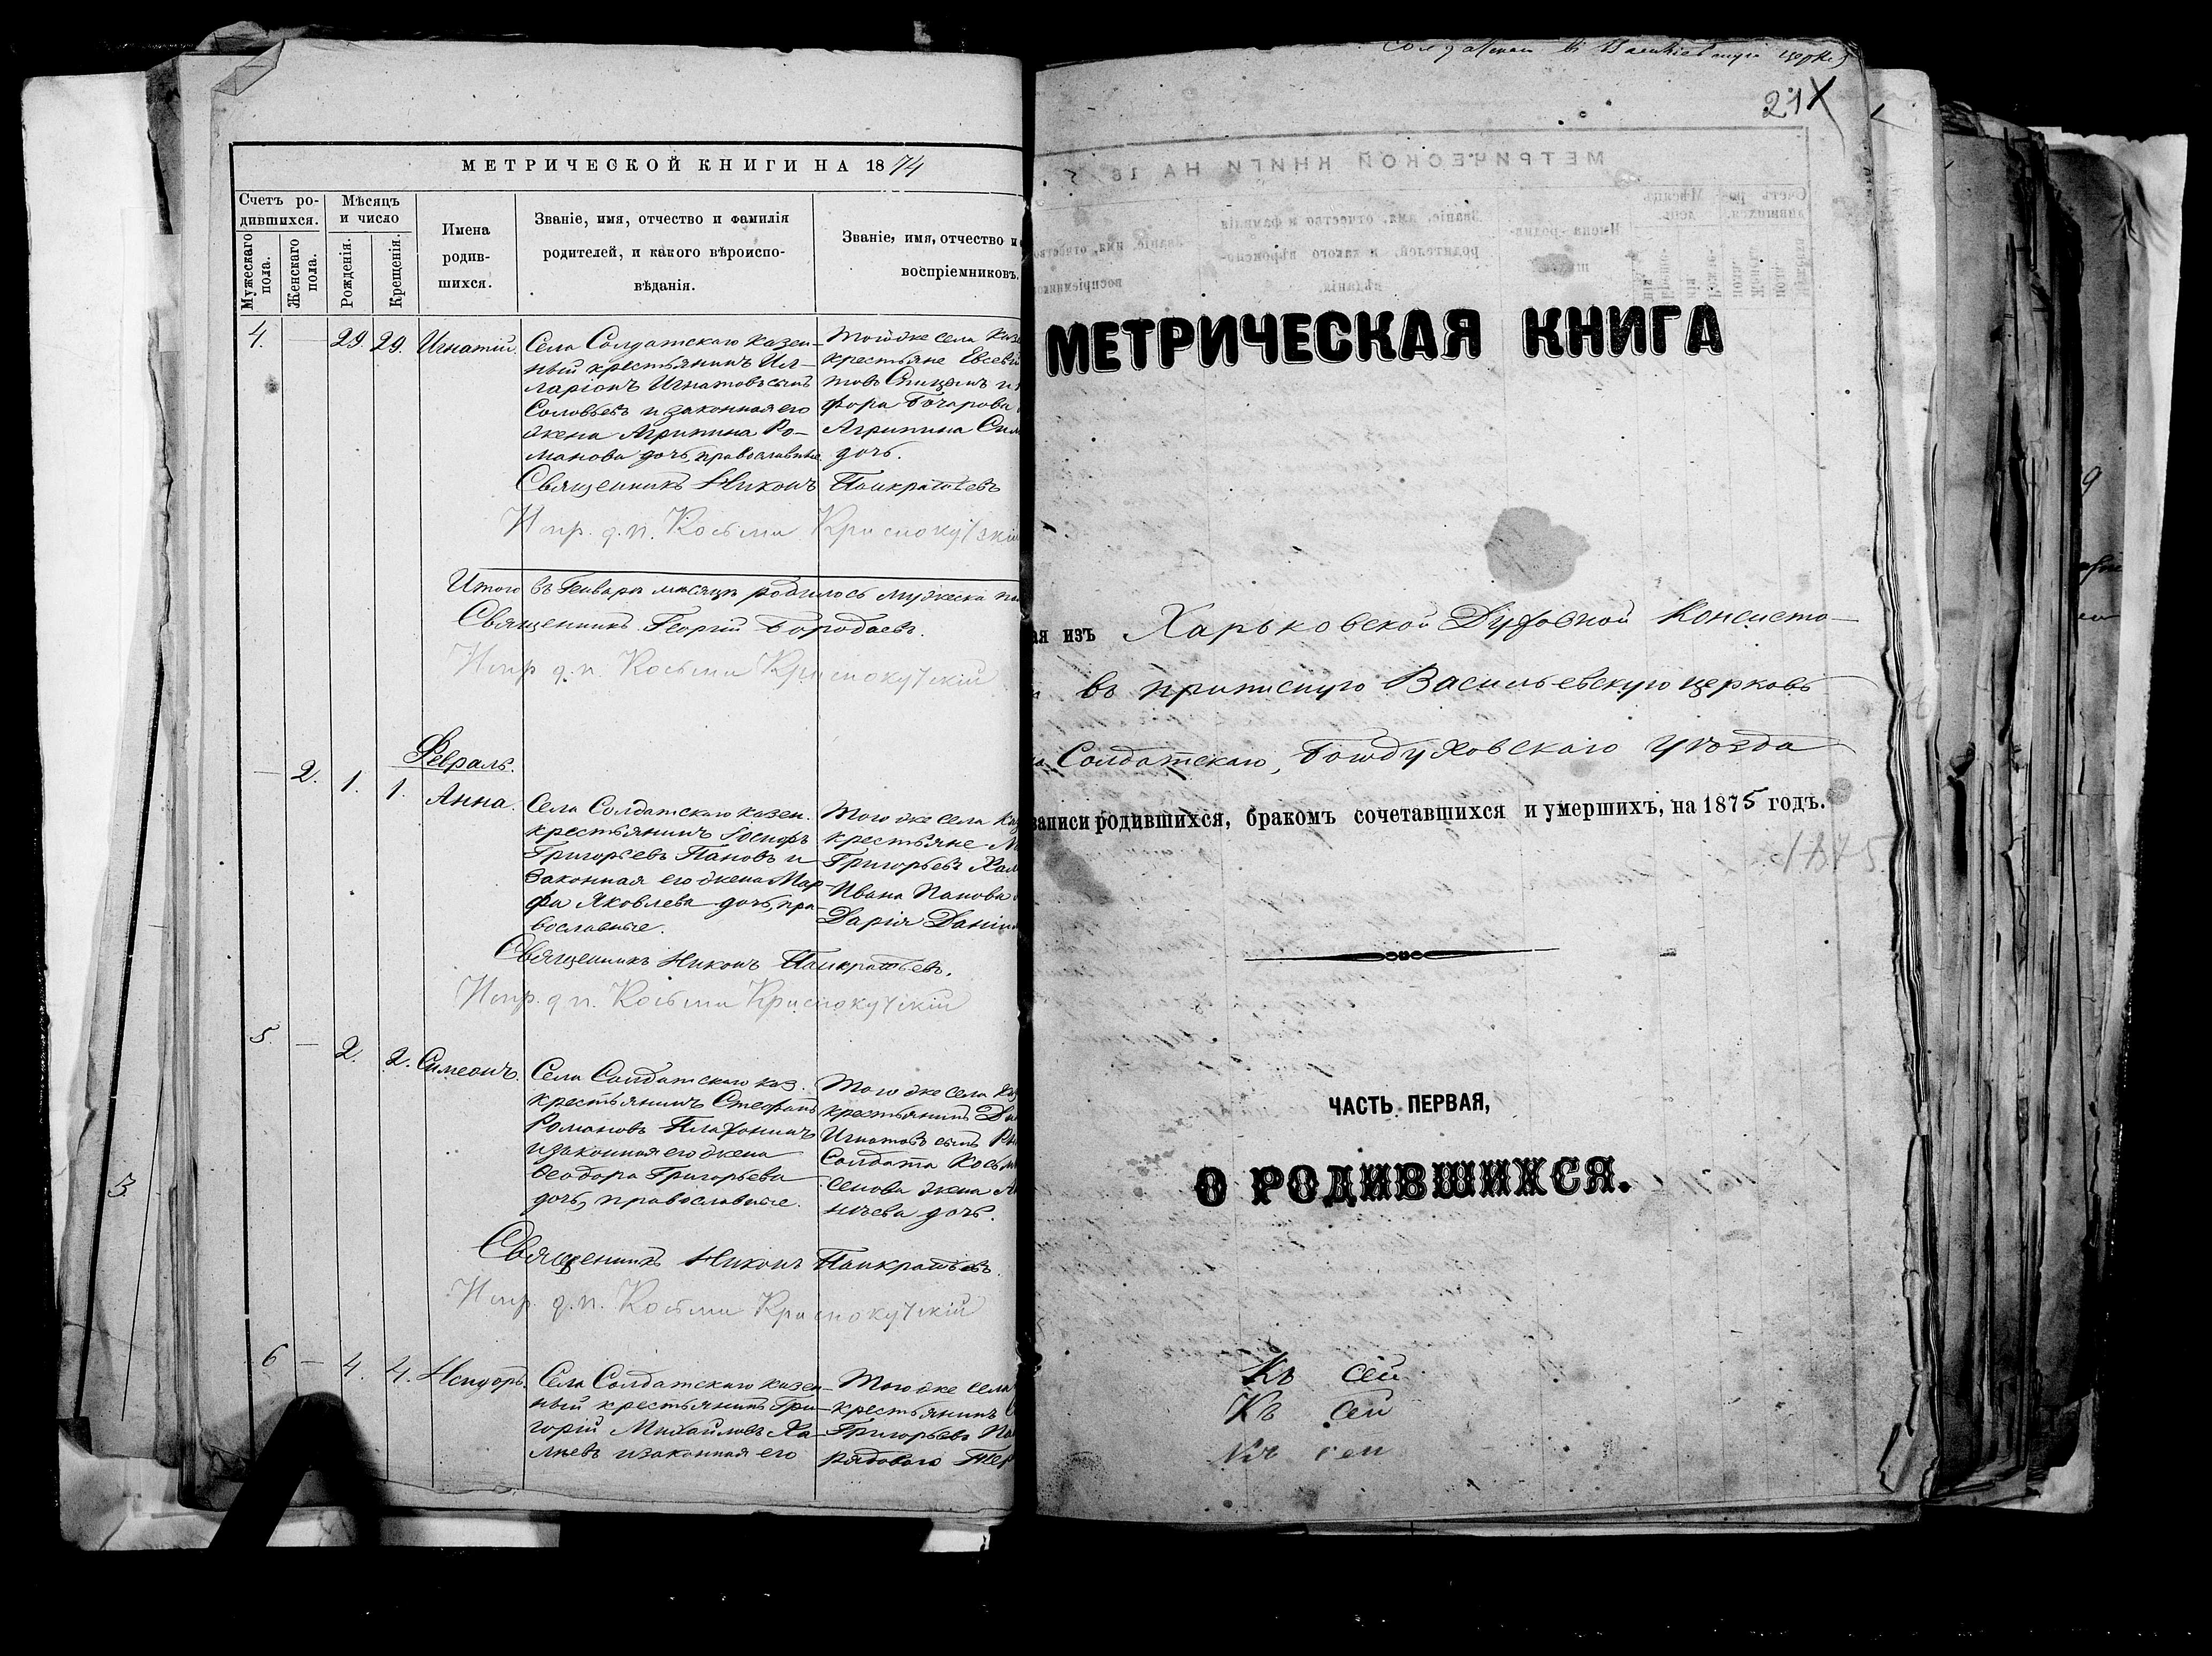 МЕТРИЧЕСКОЙ КНИГИ НА 1874
Счетъ ро-
дившихся.
Мужескаго пола.
Женскаго пола.
Мѣсяцъ
и число
Рожденія.
Крещенія.
Имена
родив-
шихся.
Званіе, имя, отчество и фамилія
родителей, и какого вѣроиспо-
вѣданія.
Званіе, имя, отчество и
воспріемниковъ.
4. — 29. 29. Игнатій.
Села Солдатскаго казен-
ный крестьянинъ Ил-
ларіонъ Игнатовъ сынъ
Соловьевъ и законная его
жена Агрипина Ро-
манова дочь, православные.
Той же села
крестьяне Евсевій
товъ Спицынъ и
фора Бочарова
Агрипина
дочь.
Священникъ Никонъ Панкратьевъ
Испр. д. п. Косьма Краснокутскій
Итого въ Генварѣ мѣсяцѣ родилось мужеска
Священникъ Георгій Бородаевъ.
Испр. д. п. Косьма Краснокутскій
Февраль.
— 2. 1. 1. Анна.
Села Солдатскаго казен.
крестьянинъ Іосифъ
Григорьевъ Пановъ и
законная его жена Мар-
фа Яковлева дочь, пра-
вославные.
Того же села
крестьяне
Григорьевъ
Ивана Панова
Дарія
Священникъ Никонъ Панкратьевъ.
Испр. д. п. Косьма Краснокутскій
5. — 2. 2. Симеонъ.
Села Солдатскаго каз.
крестьянинъ Стефанъ
Романовъ Плахонинъ
и законная его жена
Ѳеодора Григорьева
дочь, православные.
Того же села
крестьянинъ
Игнатовъ сынъ
Солдата
сенова жена
дочь.
Священникъ Никонъ Панкратьевъ.
Испр. д. п. Косьма Краснокутскій
6 — 4. 4. Исидоръ.
Села Солдатскаго казен-
ный крестьянинъ Гри-
горій Михайловъ Ха-
лневъ и законная его
Того же села
крестьянинъ
Григорьевъ
рядового
3.
церкв
21
МЕТРИЧЕСКАЯ КНИГА
ая изъ Харьковской Духовной Консисто-
въ приписную Васильевскую церковь
Солдатскаго, Богодуховскаго уѣзда
записи родившихся, бракомъ сочетавшихся и умершихъ, на 1875 годъ.
1875
ЧАСТЬ ПЕРВАЯ,
О РОДИВШИХСЯ.
Къ сей
Къ сей
Къ сей